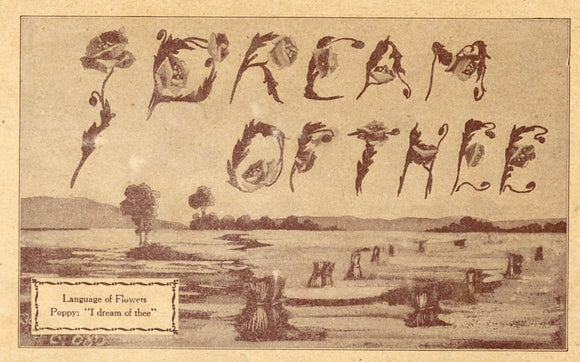 I DREAM
OF THEE
Language of Flowers
Poppy: "I dream of thee"